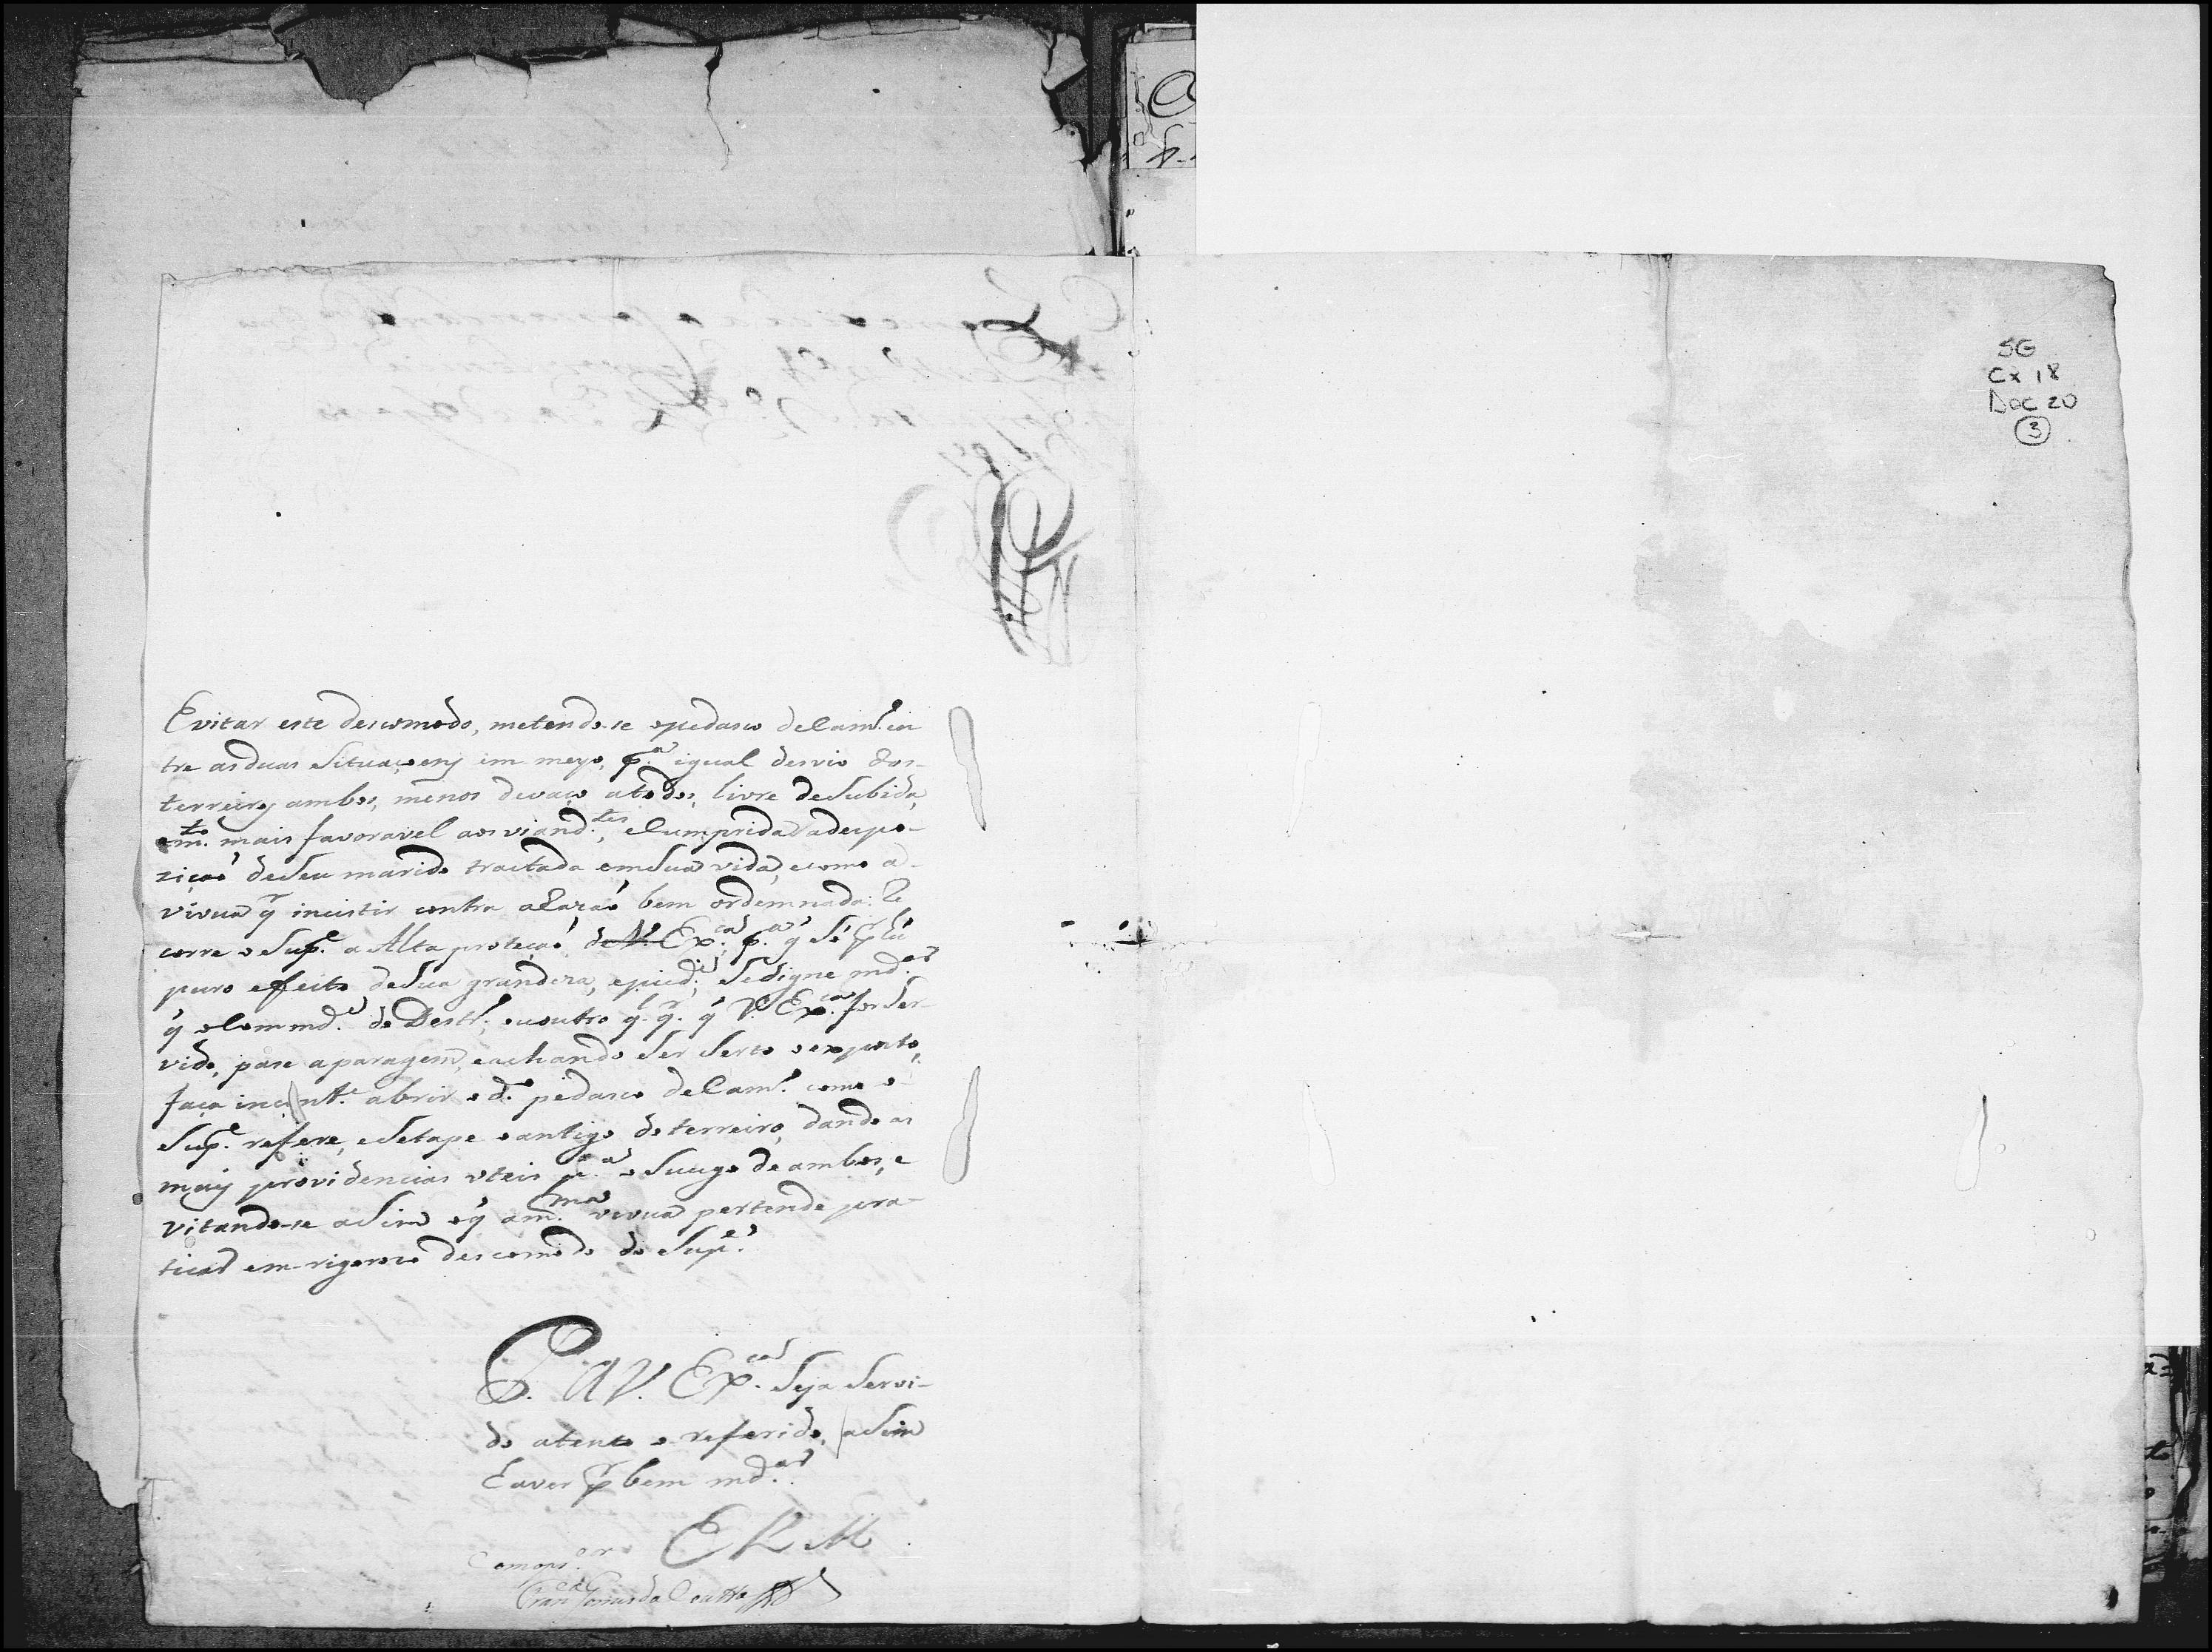 Evitar este descomodo, metendo-se opedasco deCam.º en
tre asduas Situaçoens im meyo, p.ª igual desvio dos
terreiros ambos, menos devaço atodos, livre deSubida,
em.to mais favoravel aos viand.tes, eCumprida adespo-
ziçaõ deSeu marido tractada emSua vida, ecomo a
viuva q.r incistir contra aRazaõ bem ordemnada: Re
corre o Sup.e a Alta proteçaõ de V. Ex.ca p.ª q̃ Só p̃
puro effeito deSua grandeza, epied.e, Sedigne md.ar
q̃ oCommd.e do Destr.º, ououtro q.l q.r q̃ V. Ex.ca for Ser-
vido, pase aparagem, eachando Ser Serto oexposto,
faça incont.e abrir o d.º pedasco deCam.º como o
Sup.e refere, eSetape oantigo do terreiro, dando as
mais providencias uteis p.ª o Sucego de ambos, e
vitando-se aSim oq̃ am.ma viuva pertende pra-
ticar em rigoroso descomodo do Sup.e
P. AV. Ex.ca Seja Servi-
do atento o referido, aSim
Eaver p.r bem md.ar
E R M
Comopr.or
Fran.co Gomes da Coutto
SG
Cx 18
Doc 20
3